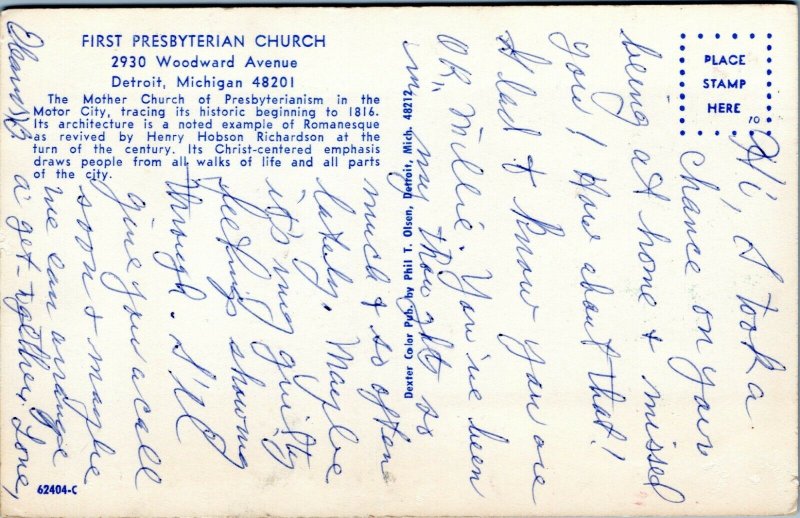 FIRST PRESBYTERIAN CHURCH
2930 Woodward Avenue
Detroit, Michigan 48201
The Mother Church of Presbyterianism in the
Motor City, tracing its historic beginning to 1816.
Its architecture is a noted example of Romanesque
as revived by Henry Hobson Richardson at the
turn of the century. Its Christ-centered emphasis
draws people from all walks of life and all parts
of the city.
PLACE
STAMP
HERE
10
Dexter Color Pub. by Phil T. Olsen, Detroit, Mich. 48212
62404-C
Hi, I took a
chance on your
being at home & missed
you! How about that!
Glad to know you are
OK, Millie. You've been
in my thoughts so
much & so often
lately. Maybe
it's my guilty
feelings showing
through. I'll
give you a call
soon & maybe
we can arrange
a get-together. Love,